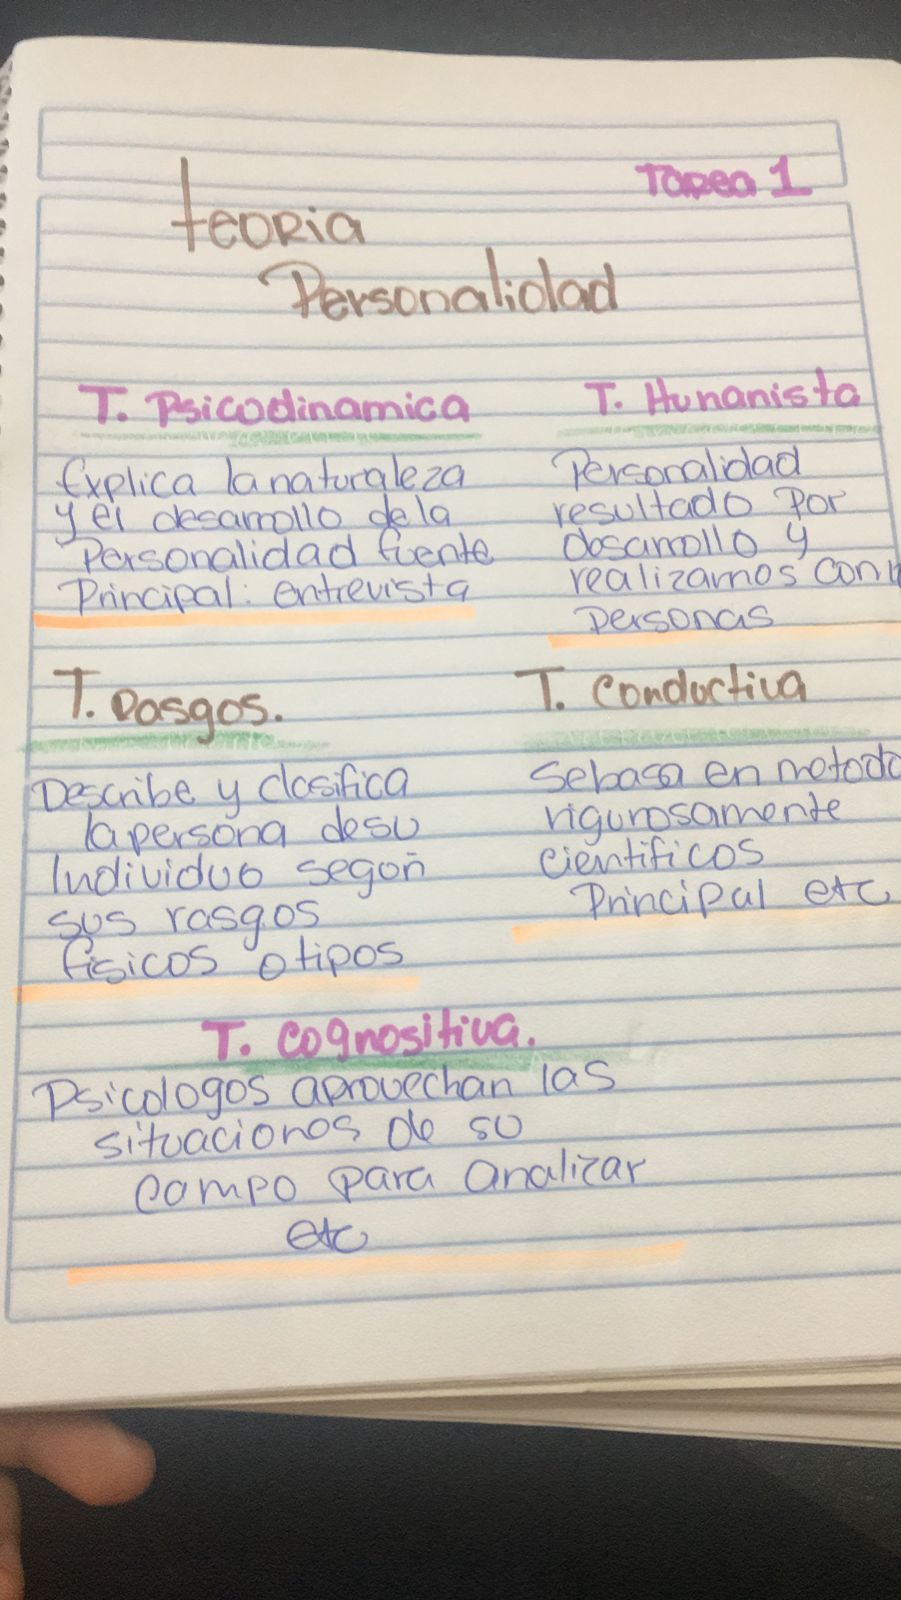 Tarea 1
teoria
Personalidad
T. Psicodinamica
Explica la naturaleza
y el desarrollo de la
Personalidad fuente
Principal: entrevista
T. Hunanista
Personalidad
resultado por
desarrollo y
realizamos con
personas
T. Dasgos.
Describe y clasifica
la persona desu
Individuo segoñ
sus rasgos
fisicos o tipos
T. Conductiva
Sebasa en metodo
rigurosamente
cientificos
Principal etc
T. Cognositiva.
Psicologos aprovechan las
situaciones de su
campo para analizar
etc